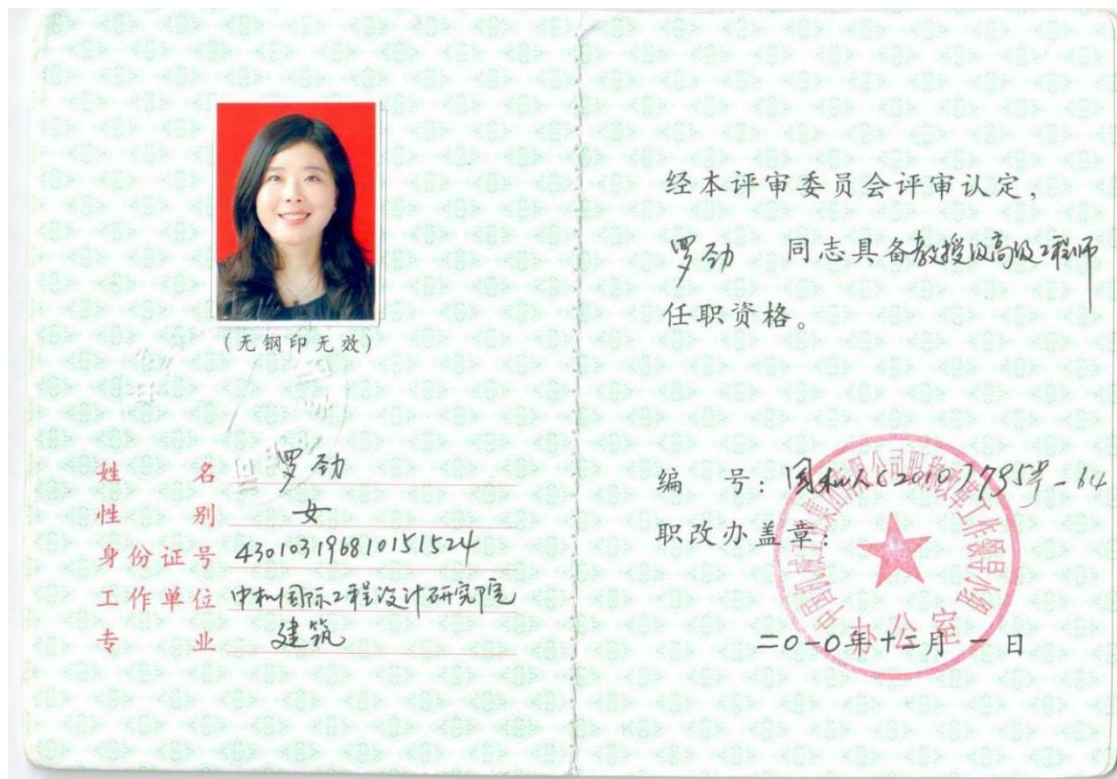 (无钢印无效)
姓 名 罗劲
性 别 女
身份证号 430103196810151524
工作单位 中机国际工程设计研究院
专 业 建筑
经本评审委员会评审认定，
罗劲 同志具备教授级高级工程师
任职资格。
编 号：国机人(2010)795号-64
职改办盖章：
中国机械工业集团有限公司职称改革工作领导小组
办公室
二0一0年十二月一日